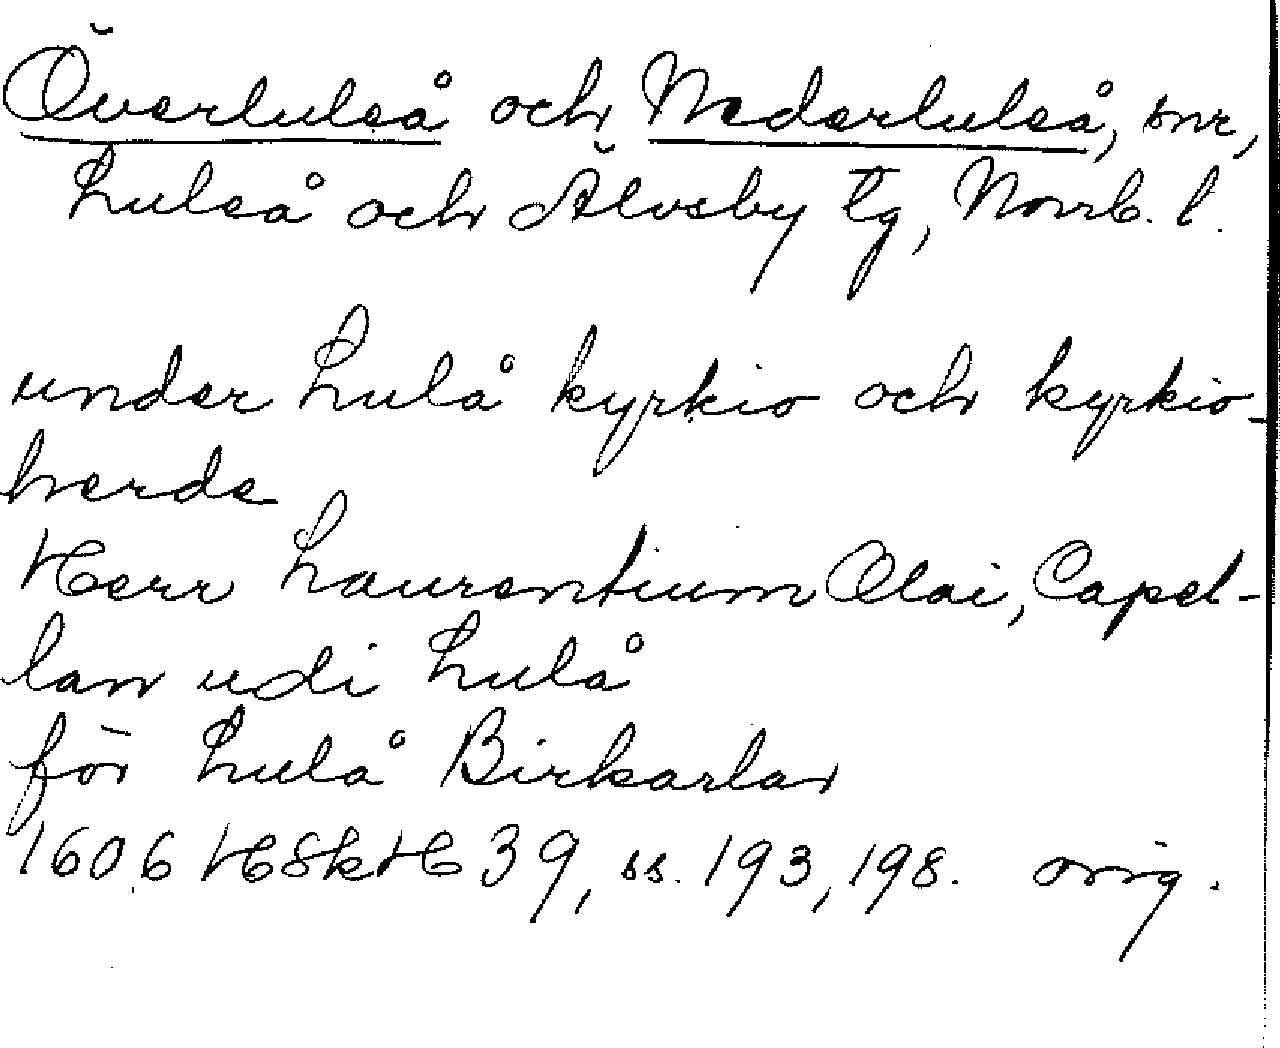 Överluleå och Nederluleå, snr,
Luleå och Älvsby tg, Norrb. l.
under Lulå kyrkio och kyrkio-
herde
Herr Laurentium Olai, Capel-
lan udi Lulå
för Lulå Birkarlar
1606 HSkH 39, ss. 193, 198. orig.